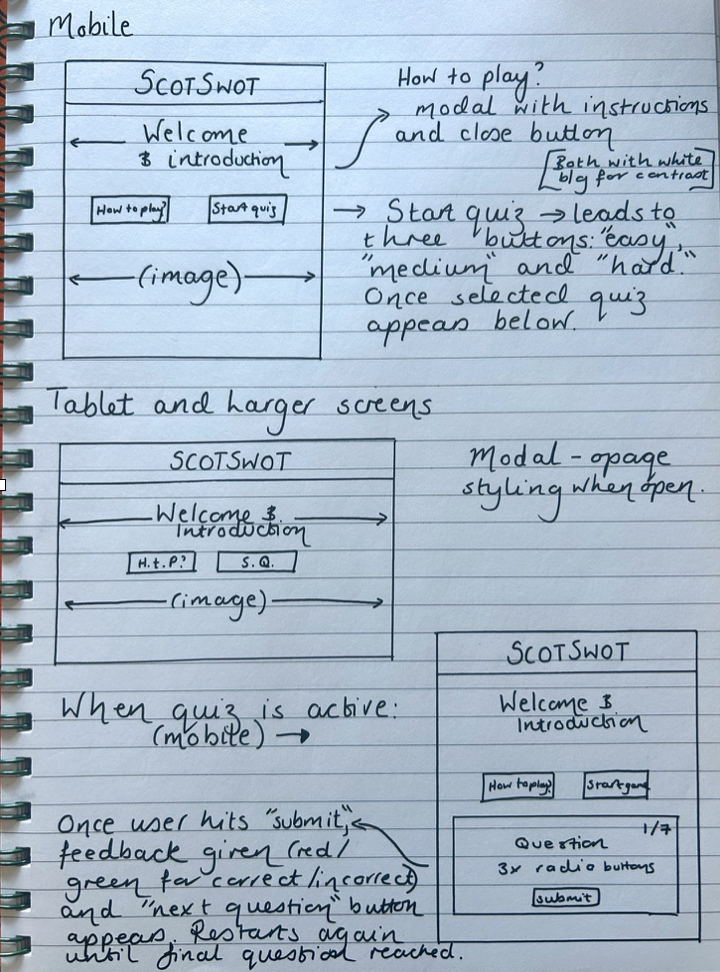 Mobile
SCOTSWOT
Welcome
& introduction
How to play?
Start quiz
(image)
How to play?
modal with instructions
and close button
[Both with white
b/g for contrast]
→ Start quiz → leads to
three buttons: "easy",
"medium" and "hard."
Once selected quiz
appears below.
Tablet and larger screens
SCOTSWOT
Welcome &
Introduction
H.t.P?
S.Q.
(image)
Modal - opage
styling when open.
When quiz is active:
(mobile) →
SCOTSWOT
Welcome &
Introduction
How to play?
Start game
1/7
Question
3x radio buttons
submit
Once user hits "submit,"
feedback given (red/
green for correct/incorrect)
and "next question" button
appears. Restarts again
until final question reached.